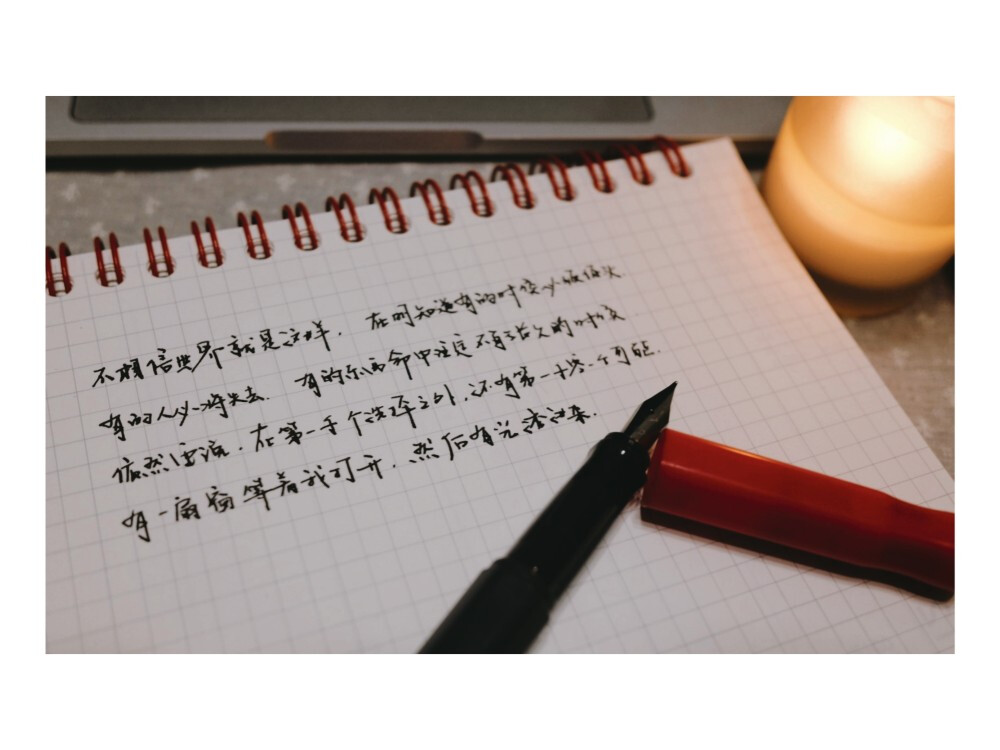 不相信世界就是这样，在明知道有的时候必须低头
有的人必将失去，有的东西命中注定不能长久的时候
依然要说，在第一千个选择之外，还有第一千零一个可能.
有一扇窗等着我打开，然后有光透进来.